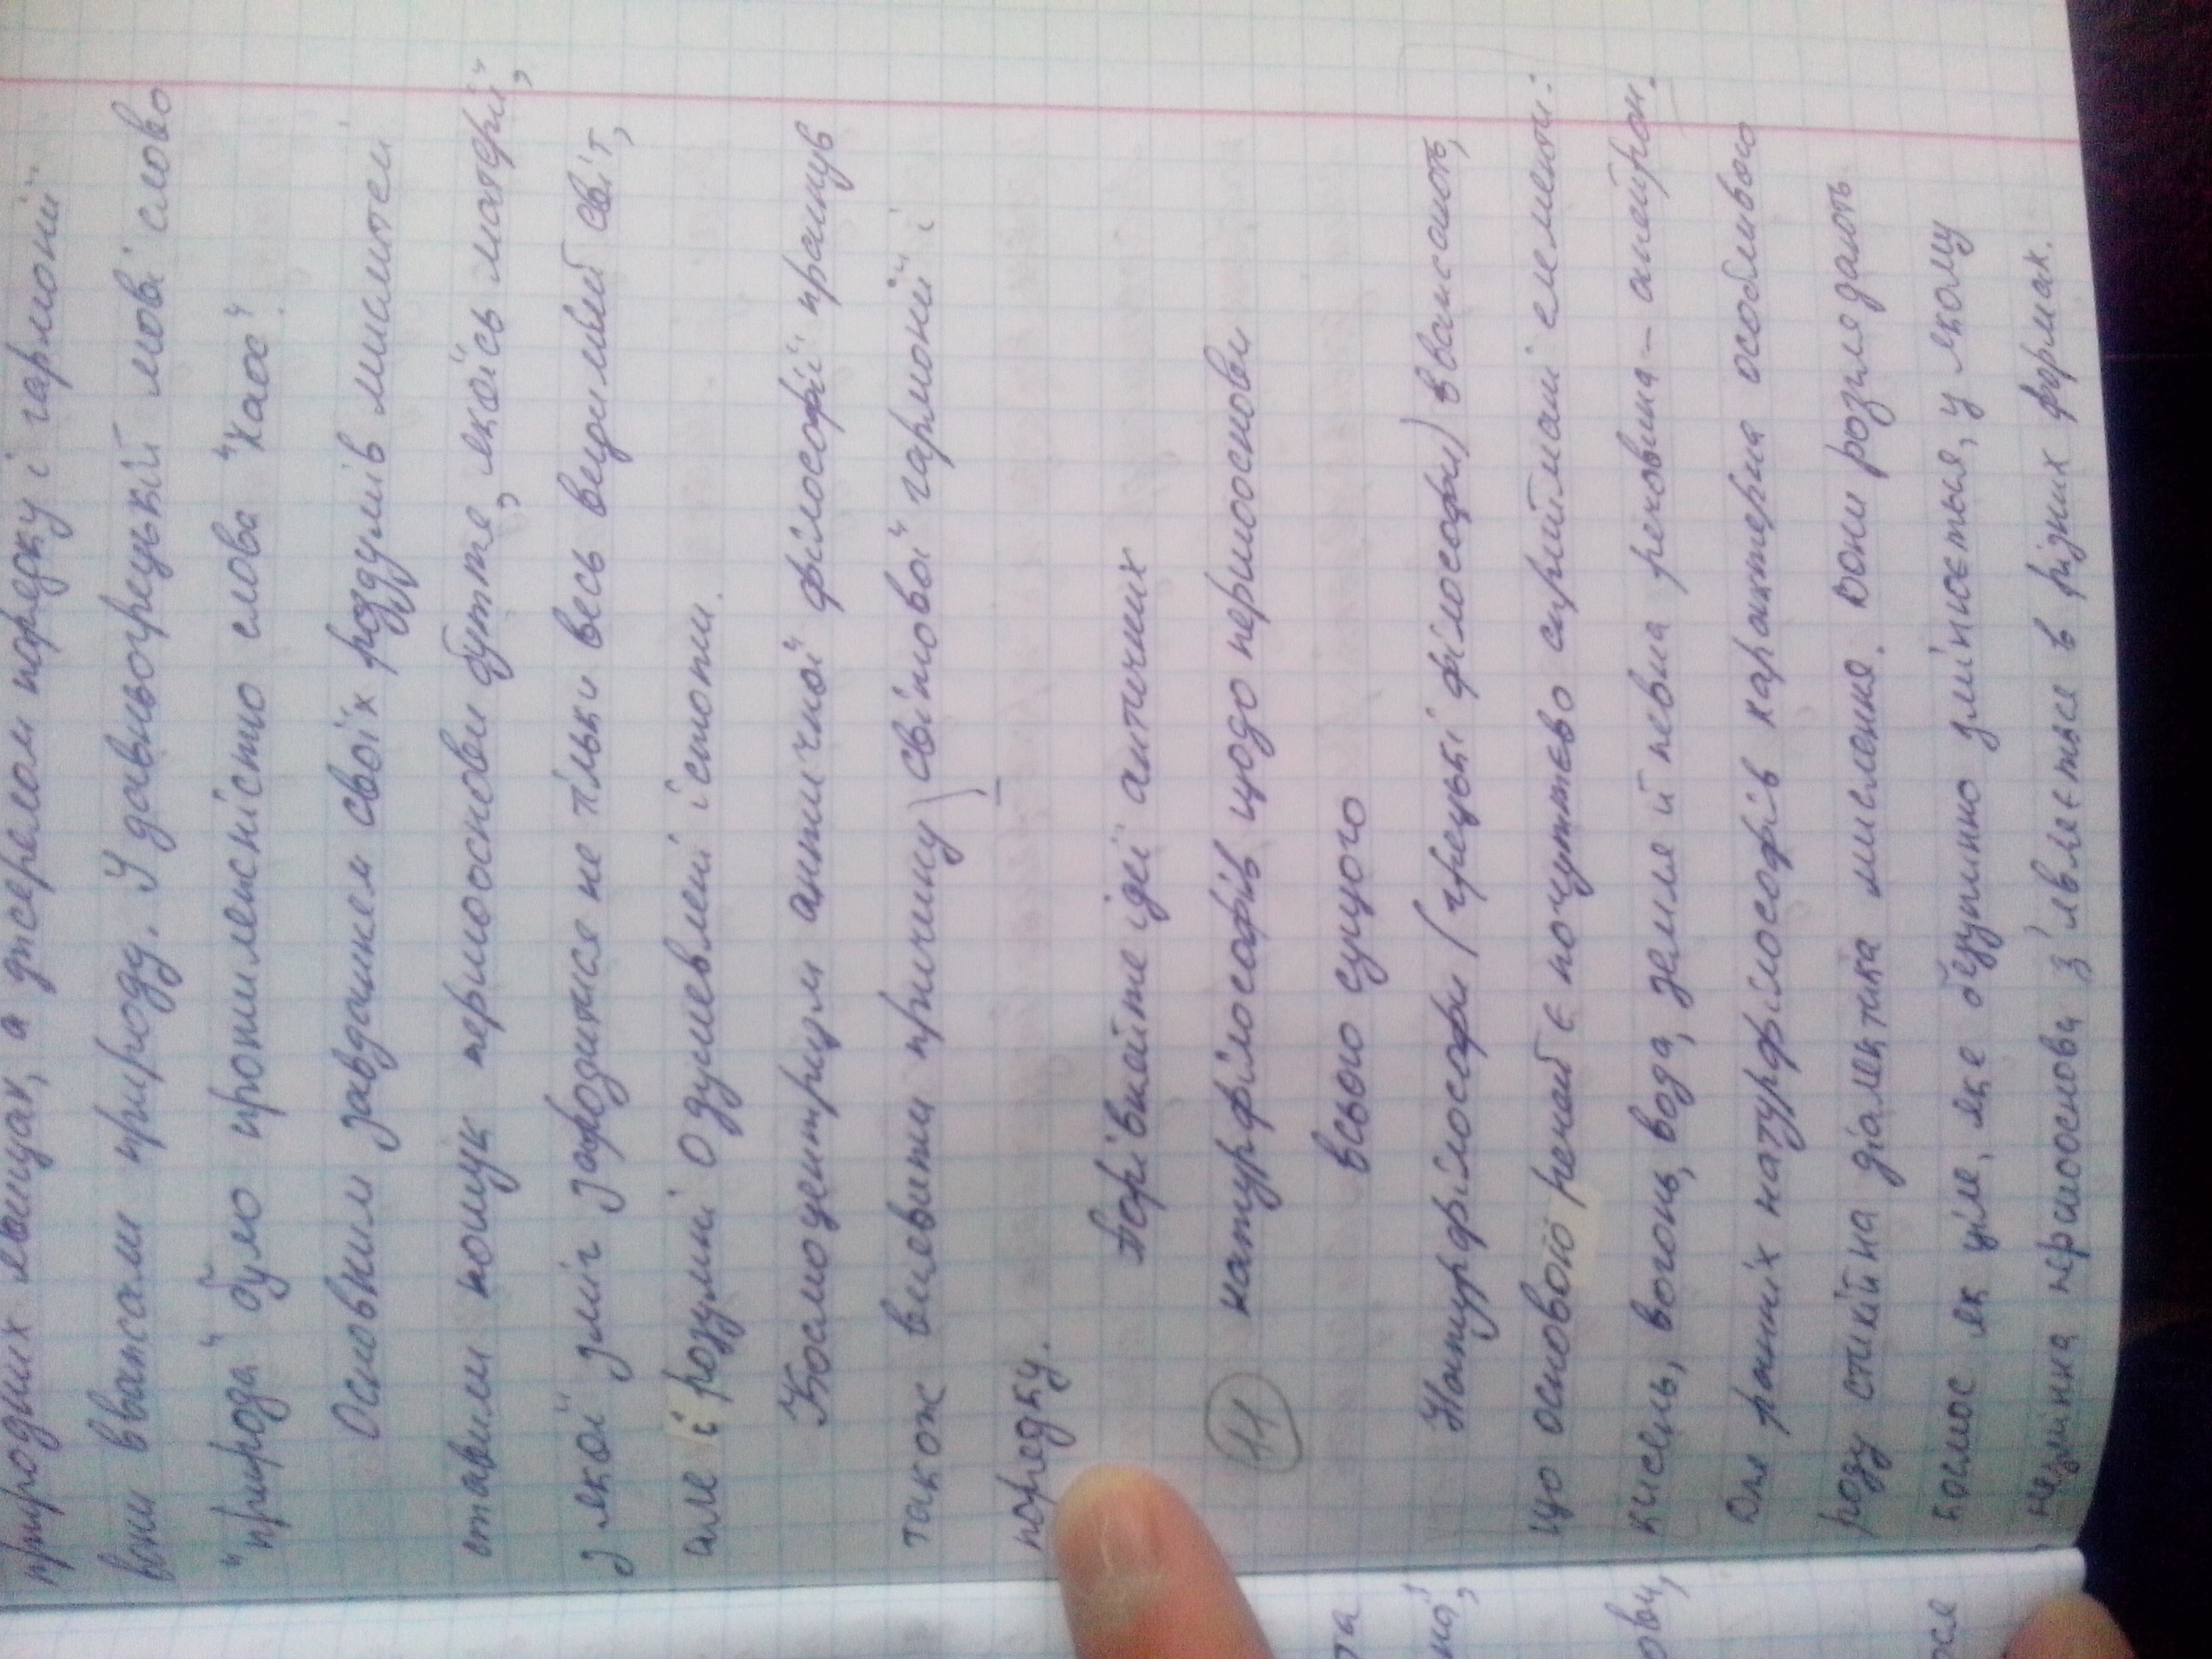 природних явищах, а джерелом порядку і гармонії
вони вважали природу. У давньогрецькій мові слово
"природа" було протилежністю слова "Хаос".
Основним завданням своїх роздумів мислителі
ставили пошук першооснови буття, якоїсь матерії,
з якої зміг зародитися не тільки весь видимий світ,
але і розумні одушевлені істоти.
Космоцентризм античної філософії прагнув
також виявити причину світової гармонії і
порядку.
Порівняйте ідеї античних
11 натурфілософів щодо першооснови
всього сущого
Натурфілософи (грецькі філософи) вважають,
що основою речей є почуттєво сприймані елементи:
кисень, вогонь, вода, земля й певна речовина - апейрон.
Для ранніх натурфілософів характерна особливого
роду стихійна діалектика мислення. Вони розглядають
космос як ціле, яке безупинно змінюється, у якому
незмінна першооснова з'являється в різних формах.
та
ної,
ови,
ося